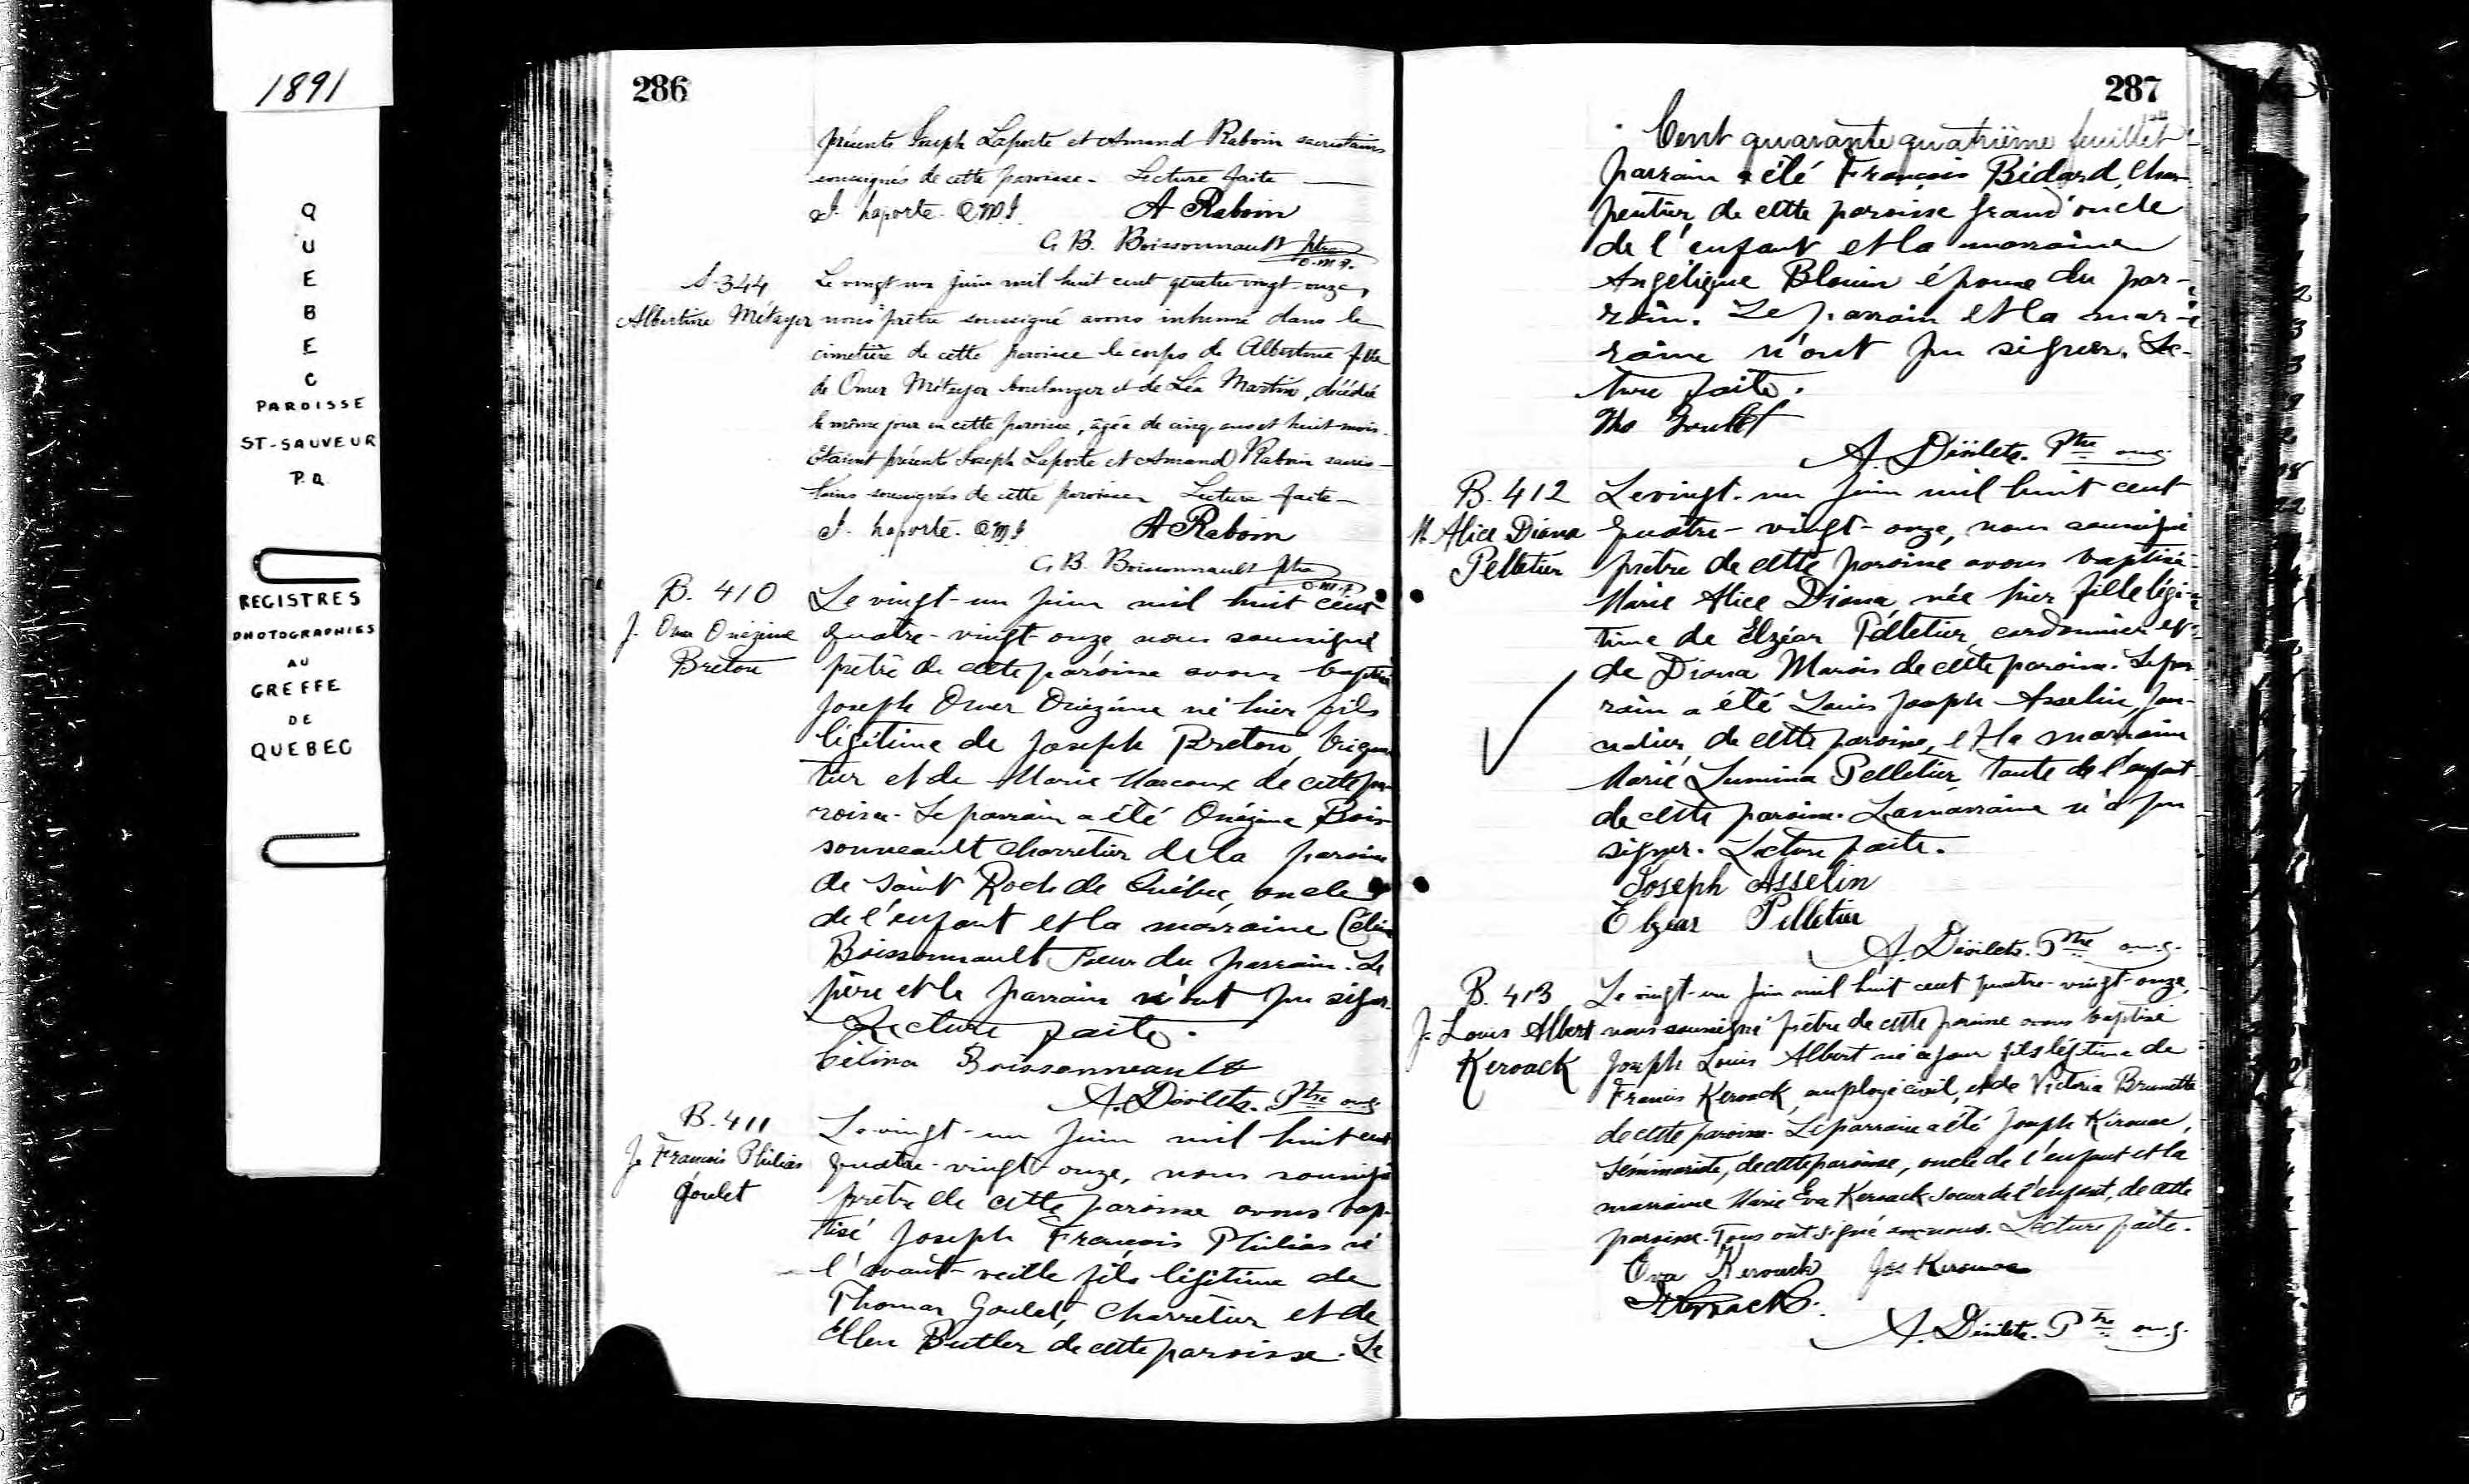 1891
QUEBEC
PAROISSE
ST-SAUVEUR
P.Q.
REGISTRES
PHOTOGRAPHIES
AU
GREFFE
DE
QUEBEC
286
présents Joseph Laporte et Amand Raboin sacristains
soussignés de cette paroisse. Lecture faite
J. Laporte. O.M.I. A Raboin
G. B. Boissonnault ptre
o.m.i.
S-344 Le vingt un juin mil huit cent quatre vingt onze,
Albertine Métayer nous prêtre soussigné avons inhumé dans le
cimetière de cette paroisse le corps de Albertine fille
de Omer Métayer boulanger et de Léa Martin, décédée
le même jour en cette paroisse, âgée de cinq ans et huit mois.
Etaient présents Joseph Laporte et Amand Raboin sacris-
tains soussignés de cette paroisse Lecture faite
J. Laporte. O.M.I A Raboin
G. B. Boissonnault ptre
o.m.i.
B. 410 Le vingt-un juin mil huit cent
J. Omer Onézime quatre-vingt-onze, nous soussigné
Breton prêtre de cette paroisse avons baptisé
Joseph Omer Onézime né hier fils
légitime de Joseph Breton,
et de Marie Marcoux de cette pa
roisse. Le parrain a été Onézime Bois
sonneault charretier de la paroisse
de Saint Roch de Québec, oncle
de l'enfant et la marraine Célina
Boissonnault soeur du parrain. Le
père et le parrain n'ont pu signer.
Lecture faite.
Célina Boissonneault
A. Désilets. Ptre omi
B. 411 Le vingt-un juin mil huit cent
J. François Philias quatre-vingt-onze, nous soussigné
Goulet prêtre de cette paroisse avons bap-
tisé Joseph François Philias né
l'avant-veille fils légitime de
Thomas Goulet, charretier et de
Ellen Butler de cette paroisse. Le
287
Cent quarante quatrième feuillet
parrain a été François Bédard, char-
pentier, de cette paroisse grand'oncle
de l'enfant et la marraine
Angélique Blouin épouse du par-
rain. Le parrain et la mar-
raine n'ont pu signer. Lec-
ture faite.
Tho Goulet
A. Désilets. Ptre omi
B. 412 Le vingt-un juin mil huit cent
M. Alice Diana quatre-vingt-onze, nous soussigné
Pelletier prêtre de cette paroisse avons baptisé
Marie Alice Diana, née hier fille légi-
time de Elzéar Pelletier, cordonnier et
de Diana Marois de cette paroisse. Le par
rain a été Louis Joseph Asselin, jour-
nalier, de cette paroisse, et la marraine
Marie Lumina Pelletier, tante de l'enfant
de cette paroisse. La marraine n'a pu
signer. Lecture faite.
Joseph Asselin
Elzear Pelletier
A. Désilets. Ptre omi
B. 413 Le vingt-un juin mil huit cent quatre-vingt-onze,
J. Louis Albert nous soussigné prêtre de cette paroisse avons baptisé
Kerouack Joseph Louis Albert né ce jour fils légitime de
Francis Kerouack, employé civil, et de Victoria Brunette
de cette paroisse. Le parrain a été Joseph Kirouac,
séminariste, de cette paroisse, oncle de l'enfant et la
marraine Marie Eva Kerouack soeur de l'enfant, de cette
paroisse. Tous ont signé avec nous. Lecture faite.
Eva Kerouack Jos Kerouac
A. Désilets. Ptre omi